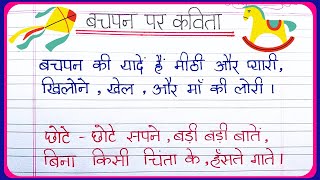 बचपन पर कविता
बचपन की यादें हैं मीठी और प्यारी,
खिलौने , खेल , और माँ की लोरी ।
छोटे - छोटे सपने , बड़ी बड़ी बातें,
बिना किसी चिंता के , हँसते गाते ।